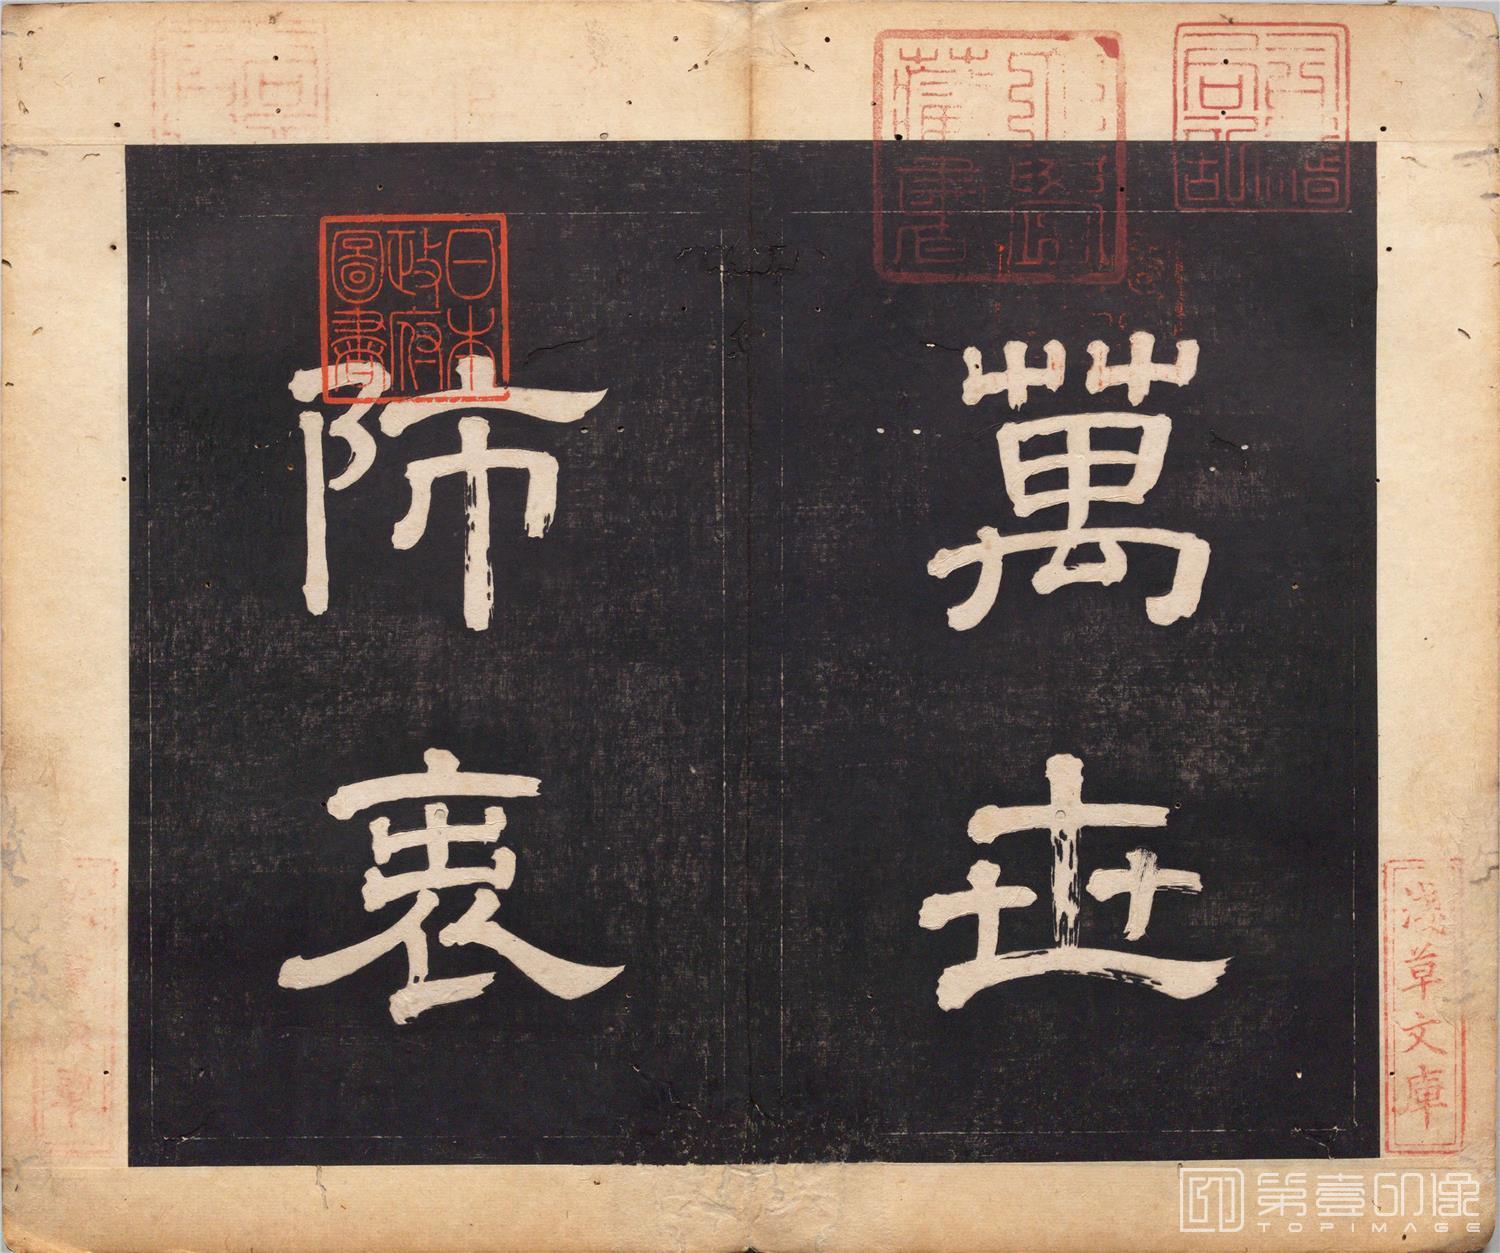 萬世
師表
日本
政府
圖書
淺草文庫
第壹印像
TOPIMAGE